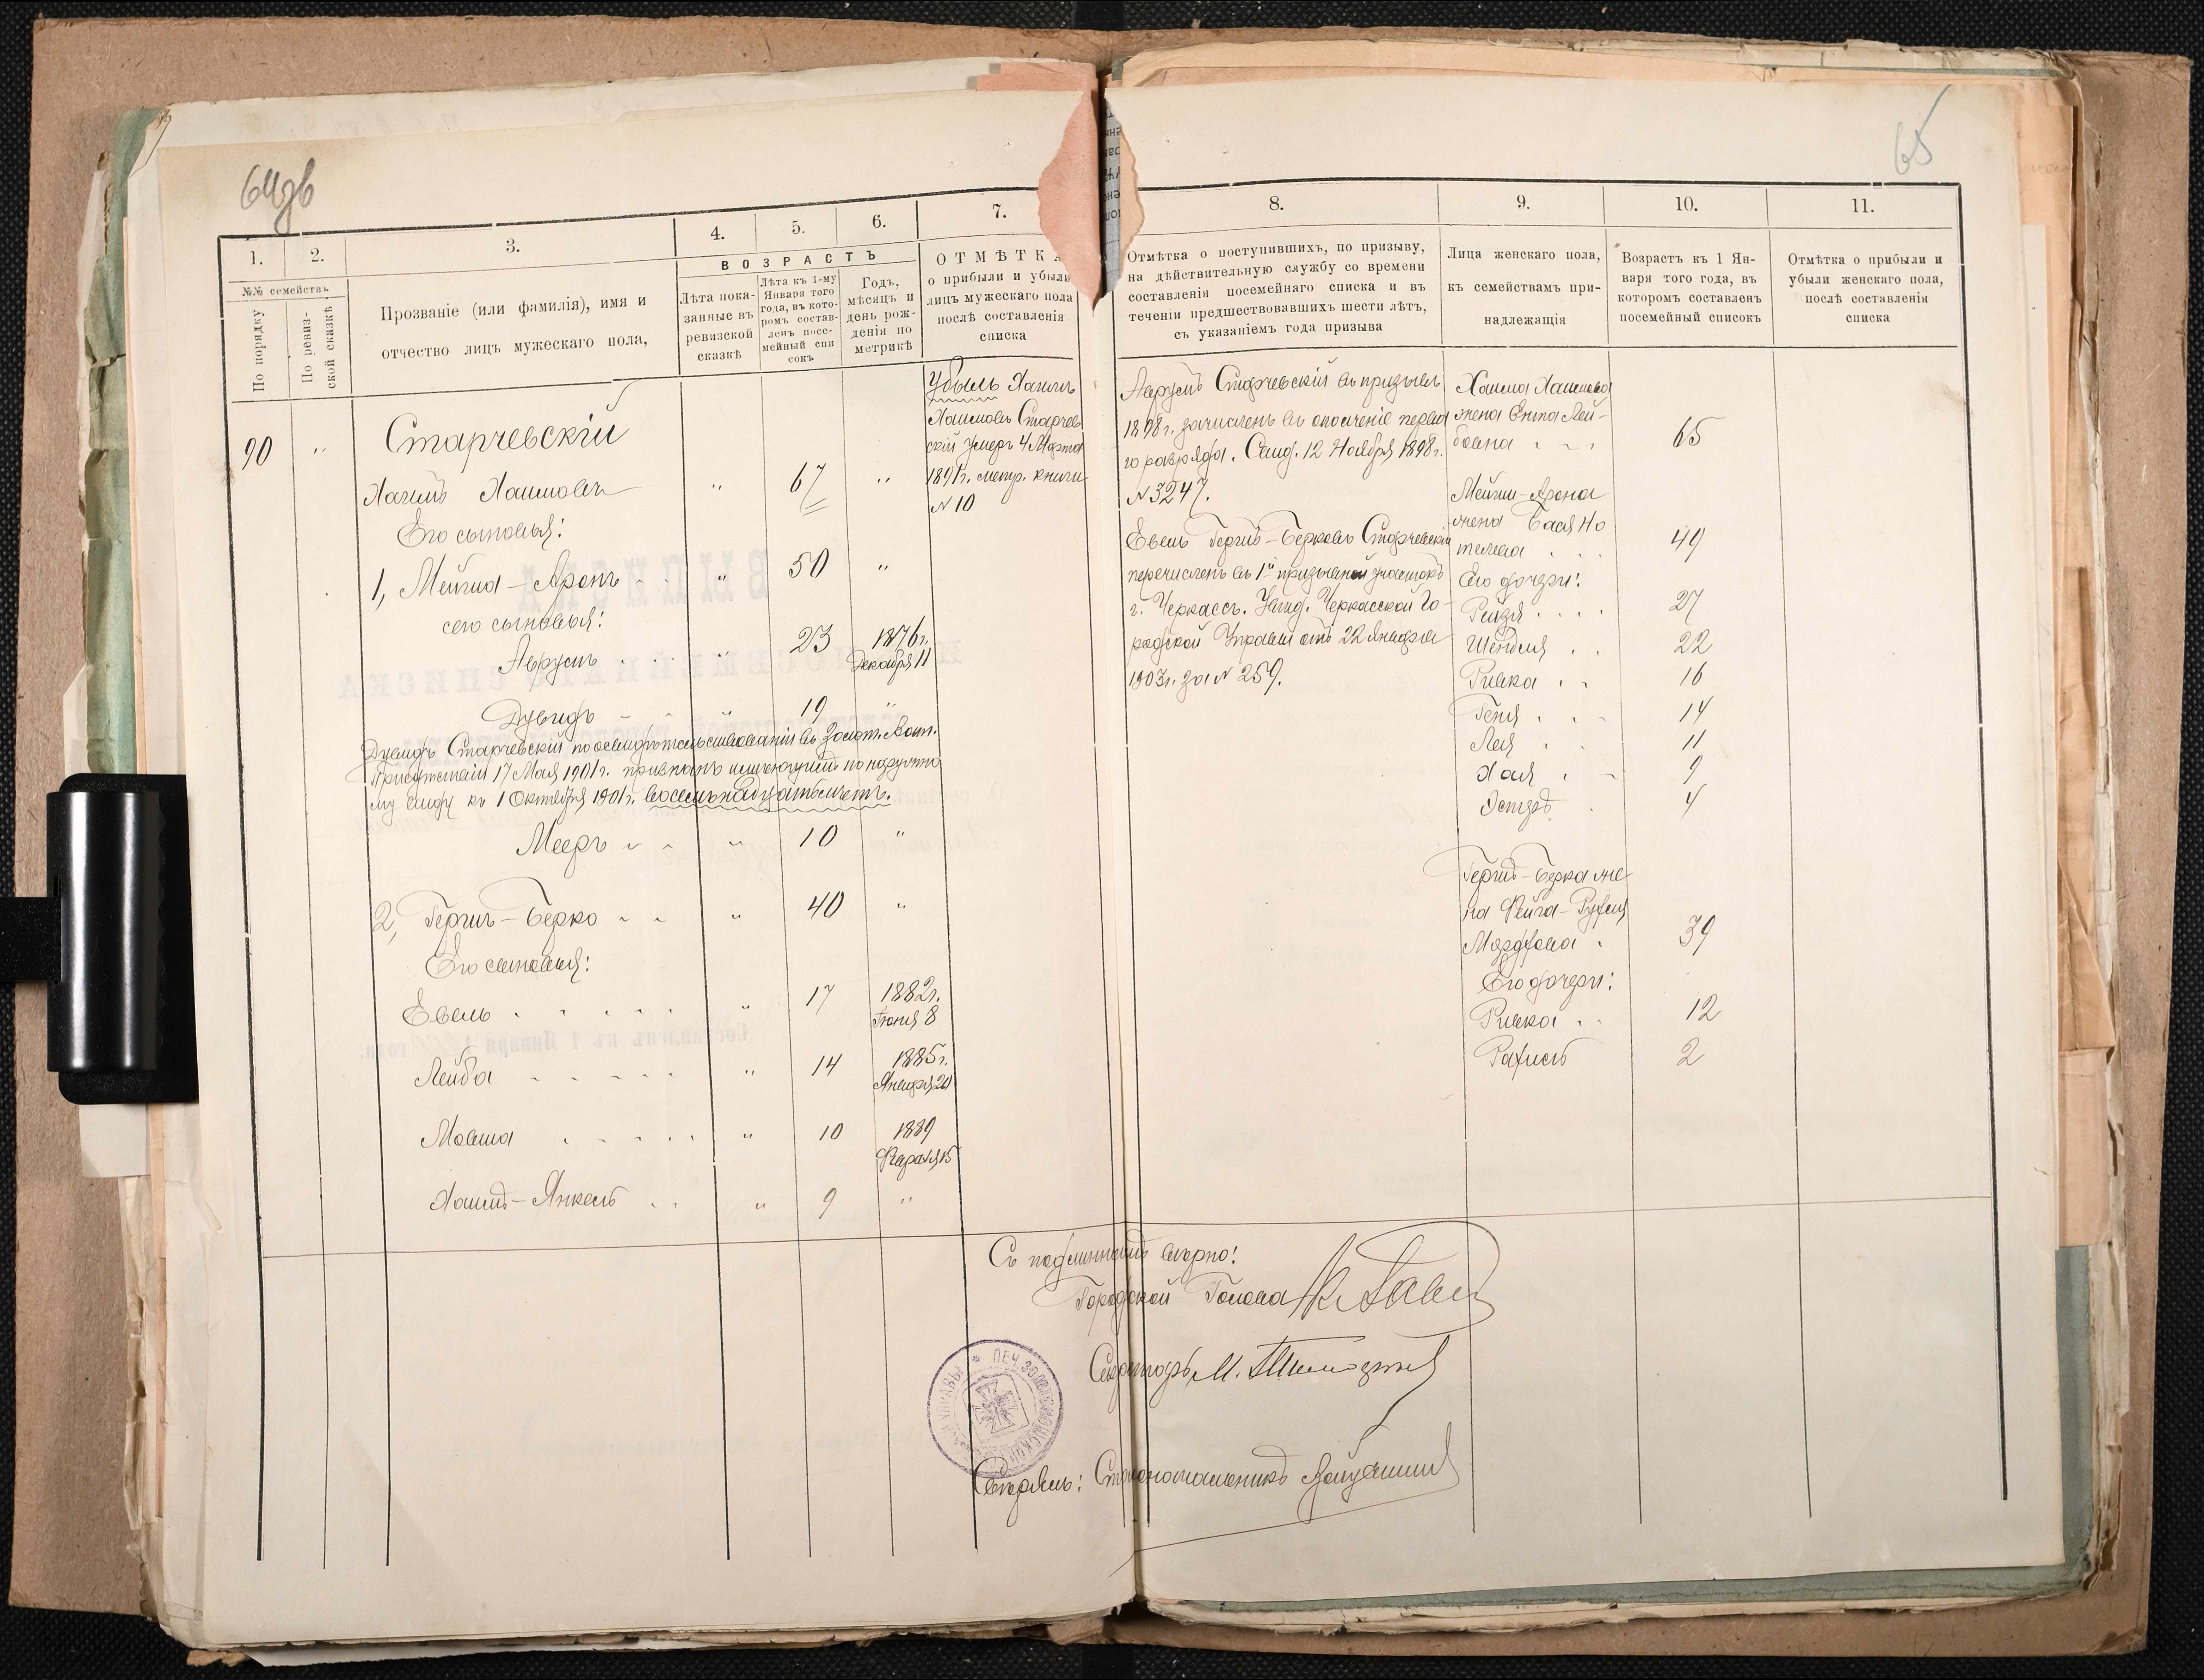 64об
65
1.
2.
3.
4.
5.
6.
7.
№№ семействъ
По порядку
По ревиз-
ской сказкѣ
Прозваніе (или фамилія), имя и
отчество лицъ мужескаго пола,
ВОЗРАСТЪ
Лѣта пока-
занные въ
ревизской
сказкѣ
Лѣта къ 1-му
Января того
года, въ кото-
ромъ состав-
ленъ посе-
мейный спи
сокъ
Годъ,
мѣсяцъ и
день рож-
денія по
метрикѣ
ОТМѢТКА
о прибыли и убыли
лицъ мужескаго пола
послѣ составленія
списка
90 "
Старчевскій
Хаимъ Хаимовъ " 67 "
Его сыновья:
1, Мейша-Аронъ " 50 "
сего сыновья:
Аврумъ " 23 1876г.
Декабря 11
Дувидъ " 19 "
Дувидъ Старчевскій по освидѣтельствованіи въ Золот. Воин.
Присутствіи 17 Мая 1901г. признанъ имѣющимъ по наружно
му виду къ 1 Октября 1901г. восемьнадцать лѣтъ.
Мееръ " 10 "
2, Гершъ-Берко " 40 "
Его сыновья:
Евель " 17 1882г.
Іюня 8
Лейба " 14 1885г.
Января 20
Мовша " 10 1889
Февраля 15
Хаимъ-Янкель " 9 "
Убыль Хаимъ
Хаимовъ Старчев
скій умеръ 4 Марта
1891г. метр. книги
№ 10
8.
9.
10.
11.
Отмѣтка о поступившихъ, по призыву,
на дѣйствительную службу со времени
составленія посемейнаго списка и въ
теченіи предшествовавшихъ шести лѣтъ,
съ указаніемъ года призыва
Лица женскаго пола,
къ семействамъ при-
надлежащія
Возрастъ къ 1 Ян-
варя того года, въ
которомъ составленъ
посемейный списокъ
Отмѣтка о прибыли и
убыли женскаго пола,
послѣ составленія
списка
Аврумъ Старчевскій въ призывъ
1898г. зачисленъ въ ополченіе перва
го разряда. Свид. 12 Ноября 1898г.
№ 3247.
Евель Гершъ-Берковъ Старчевскій
перечисленъ въ 1й призывной участокъ
г. Черкассъ. Увѣд. Черкасской Го-
родской Управы отъ 22 Января
1903г. за № 259.
Хаима Хаимова
жена Ента Лей-
бовна 65
Мейши-Арона
жена Бася Но
телева 49
Его дочери:
Рейзя 27
Шендля 22
Ривка 16
Геня 14
Лея 11
Хая 9
Эстеръ 4
Гершъ-Берка же
на Фейга-Рухля
Мордкова 39
Его дочери:
Ривка 12
Рахиль 2
Съ подлиннымъ вѣрно!
Городской Голова
Секретарь М.
Свѣрялъ: Столоначальникъ